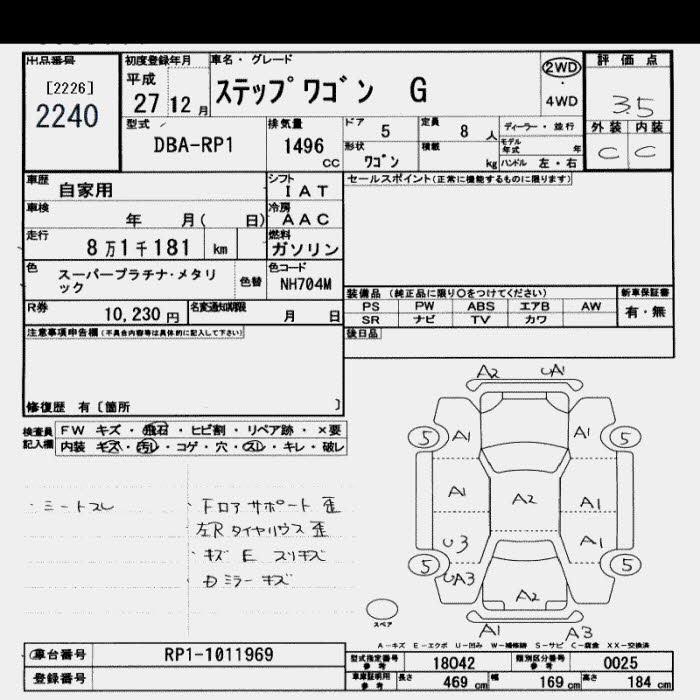 出品番号 初度登録年月 車名・グレード 評価点
[2226] 平成 ステップワゴン G 2WD
2240 27 12 月 ・ 4WD 3.5
型式 排気量 ドア 5 定員 8 人 ディーラー・並行 外装 内装
DBA-RP1 1496 cc 形状 ワゴン 積載 kg モデル年式 年 C C
ハンドル 左・右
車歴 自家用 シフト IAT セールスポイント(正常に機能するものに限ります)
車検 年 月( 日) 冷房 AAC
走行 8万1千181 km 燃料 ガソリン
色 スーパープラチナ・メタリ 色替 色コード
ック NH704M
装備品 (純正品に限り〇をつけてください) 新車保証書
R券 10,230 円 名変通知期限 月 日 PS PW ABS エアB AW 有・無
SR ナビ TV カワ
注意事項申告欄(不具合内容等は具体的に記入して下さい) 後日品
修復歴 有〔箇所 〕
検査員 FW キズ・飛石・ヒビ割・リペア跡・×要
記入欄 内装 キズ・汚レ・コゲ・穴・スレ・キレ・破レ
A2 UA1
5 A1 A1 5
A1 A2 A1
U3 A1
5 UA3 A2 5
A1 A3
・シートスレ ・フロアサポート歪
左Rタイヤハウス歪
・キズ E スリキズ
・ミラーキズ
スペア
A-キズ E-エクボ U-凹み W-補修跡 S-サビ C-腐食 XX-交換済
車台番号 RP1-1011969 型式指定番号 参考 18042 類別区分番号 参考 0025
登録番号 車庫証明用 参考 長さ 469 cm 幅 169 cm 高さ 184 cm